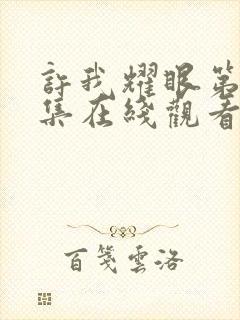 許我耀眼第
集在綫觀看
百箋雲洛